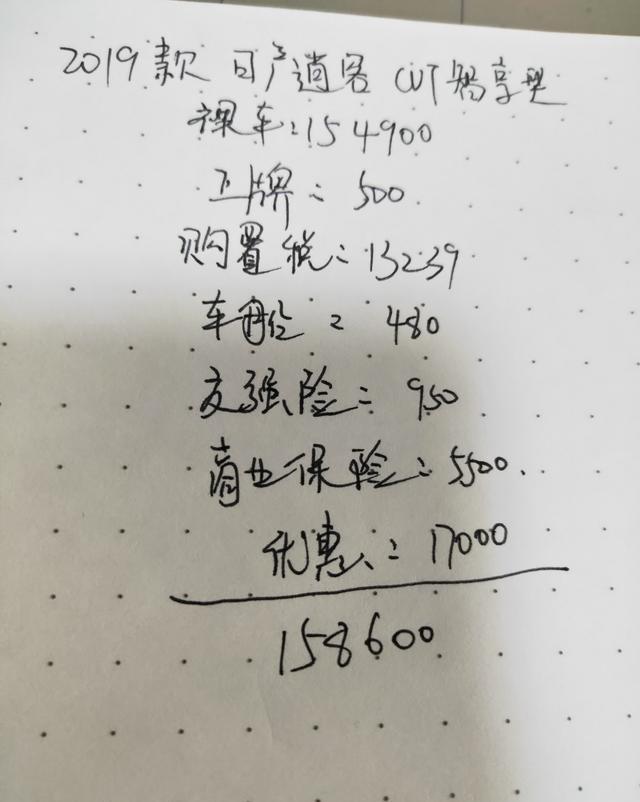 2019款 日产逍客 CVT智享型
裸车:154900
上牌:500
购置税:13239
车船:480
交强险:950
商业保险:5500.
优惠:17000
158600